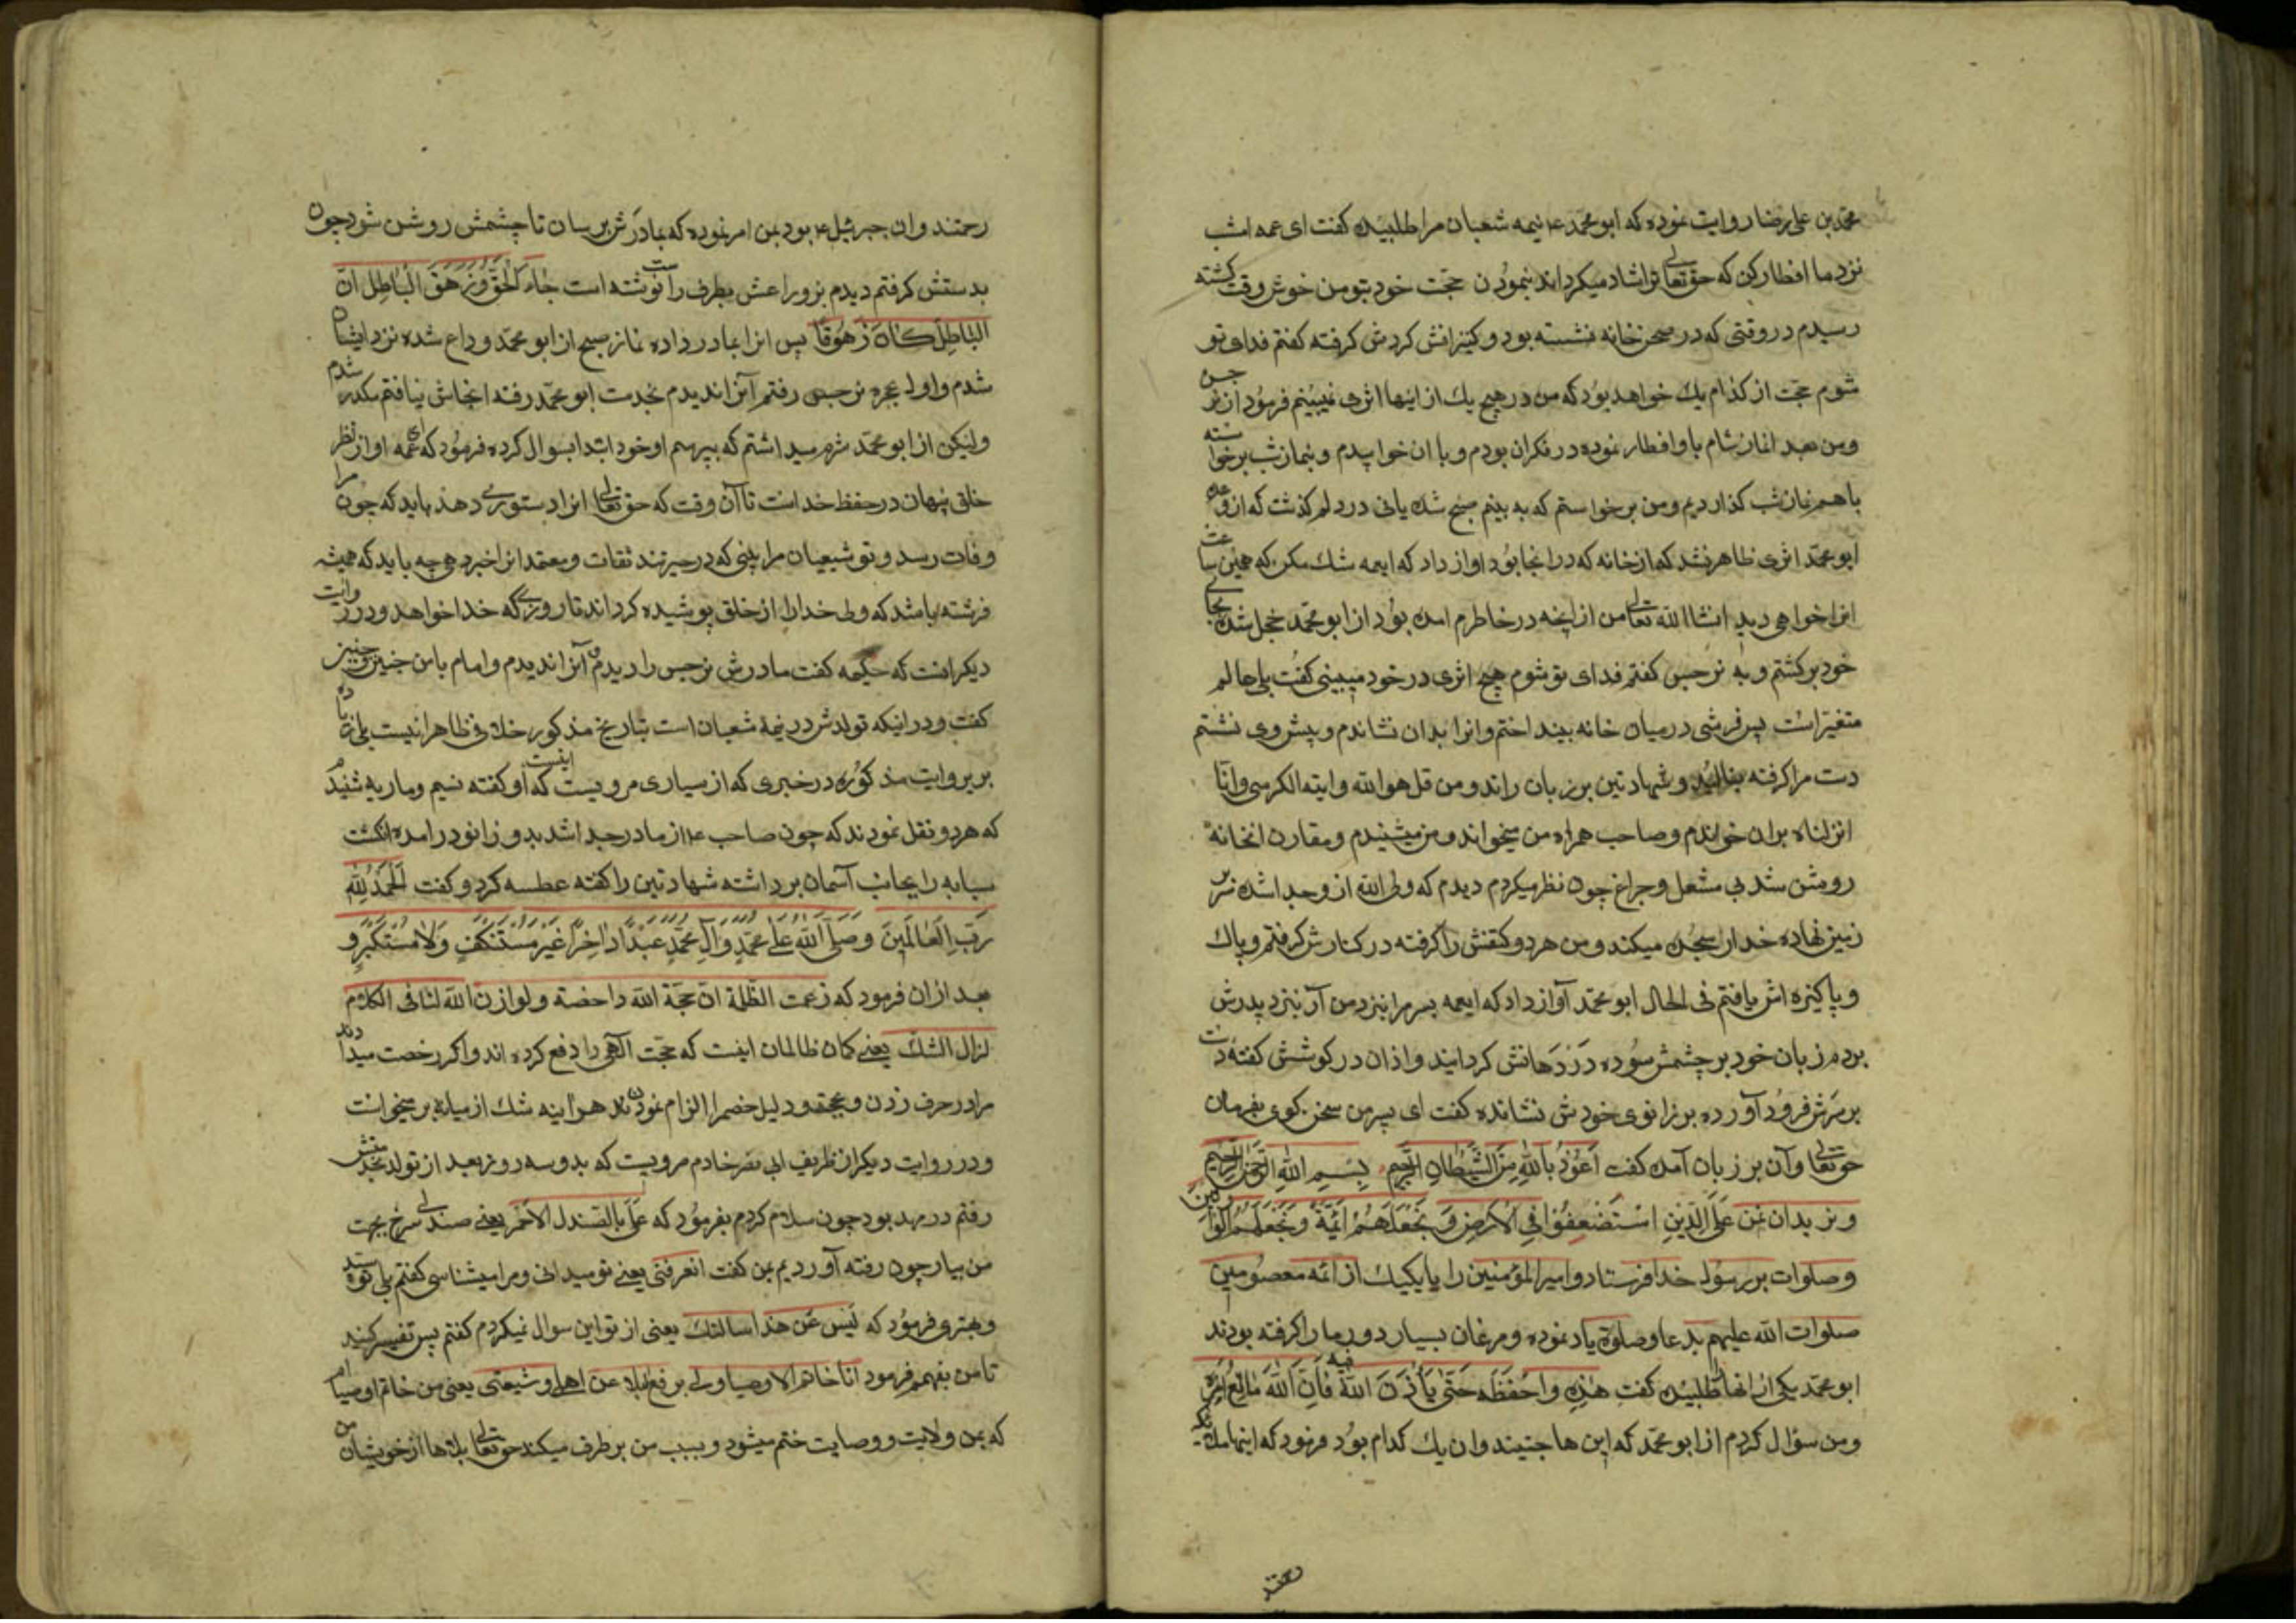 محمد بن علی رضا روایت نموده که ابو محمد ع نیمه شعبان مرا طلبیده کفت ای عمه امشب
نزد ما افطار کن که حق تعالی ترا شاد میکرداند بنمودن حجت خود بتو من خوش وقت کشته
رسیدم در وقتی که در صحن خانه نشسته بود و کنیزانش کردش کرفته کفتم فدای تو
شوم حجت از کدام یک خواهد بود که من در هیچ یک از اینها اثری نمیبینم فرمود از نرجس
ومن بعد از نماز شام با او افطار نموده در فکر ان بودم و با ان خوابیدم و بنماز شب برخواسته
با هم نماز شب کذاردیم ومن برخواستم که به بینم صبح شد یانی در دلم کذشت که از وعده
ابو محمد اثری ظاهر نشد که از خانه که در انجا بود اواز داد که ایعمه شک مکن که همین ساعت
انرا خواهی دید انشا الله تعالی من از انچه در خاطرم امده بود از ابو محمد خجل شده بجای
خود برکشتم و به نرجس کفتم فدای تو شوم هیچ اثری در خود میبینی کفت بلی حالم
متغیر است پس فرشی در میان خانه بینداختم وانرا بدان نشاندم و پیش وی نشستم
دست مرا کرفته بنالید و شهادتین بر زبان راند و من قل هو الله وایته الکرسی وانا
انزلناه بران خواندم و صاحب همراه من میخواند و من میشنیدم و مقارن ان خانه
روشن شد بی مشعل و چراغ چون نظر میکردم دیدم که ولی الله از وجدا شده سر بر
زمین نهاده خدا را سجده میکند و من هر دو کتفش را کرفته در کنارش کرفتم و پاک
و پاکیزه اش یافتم فی الحال ابو محمد آواز داد که ایعمه پسر مرا بنزد من آر بنزد پدرش
بردم زبان خود بر چشمش سوده در دهانش کردانید و اذان در کوشش کفته دست
بر سرش فرود آورده بر زانوی خودش نشانده کفت ای پسر من سخن کوی بفرمان
حق تعالی وآن بر زبان آمده کفت اعوذ بالله من الشیطان الرجیم بسم الله الرحمن الرحیم
و نرید ان نمن علی الذین استضعفوا فی الارض و نجعلهم ائمة و نجعلهم الوارثین
و صلوات بر رسول خدا فرستاد و امیر المؤمنین را با یکیک از ائمه معصومین
صلوات الله علیهم بدعا و صلوة یاد نموده و مرغان بسیار دور ما را کرفته بودند
ابو محمد یکی از انها طلبیده کفت هذه و احفظه حتی یأذن الله فیه فان الله بالغ امره
ومن سؤال کردم از ابو محمد که این ها چیتند وان یک کدام بود فرمود که اینها ملائکه
رحمتند
رحمتند وان جبرئیل ع بود بمن امر نموده که بمادرش برسان تا چشمش روشن شود چون
بدستش کرفتم دیدم بر ذراعش بطرف راست نوشته است جاء الحق و زهق الباطل ان
الباطل کان زهوقا پس انرا بمادر داده نماز صبح از ابو محمد وداع شده نزد ایشان
شدم و اول بحجره نرجس رفتم آنرا ندیدم بخدمت ابو محمد رفته انجاش نیافتم مکدر شدم
ولیکن از ابو محمد شرم میداشتم که بپرسم او خود ابتدا بسوال کرده فرمود که ای عمه او از نظر
خلق پنهان در حفظ خداست تا آن وقت که حق تعالی انرا دستوری دهد باید که چون مرا
وفات رسد و تو شیعیان مرا بینی که در حیرتند ثقات و معتمدانرا خبر دهی چه باید که همیشه
فرشته باشد که ولی خدا را از خلق پوشیده کرداند تا روزی که خدا خواهد و در روایت
دیکر انست که حکیمه کفت مادرش نرجس را دیدم و آنرا ندیدم و امام با من چنین و چنین
کفت و در اینکه تولدش در نیمه شعبان است بتاریخ مذکور خلافی ظاهرا نیست بلی زیاده
بر روایت مذکوره در خبری که از سیاری مرویست اینست که او کفته نسیم و ماریه شنیدم
که هر دو نقل نمودند که چون صاحب ع از مادر جدا شد بدو زانو در امده انکشت
سبابه را بجانب آسمان برداشته شهادتین را کفته عطسه کرد و کفت الحمد لله
رب العالمین و صلی الله علی محمد و آل محمد عبدا داخرا غیر مستنکف و لا مستکبر و
بعد ازان فرمود که زعمت الظلمة ان حجة الله داحضة و لو اذن الله لنا فی الکلام
لزال الشک یعنی کمان ظالمان اینست که حجت الهی را دفع کرده اند واکر رخصت میدادند
مرا در حرف زدن و بحجت و دلیل خصم را الزام نمودن هر اینه شک از میانه بر میخواست
و در روایت دیکر از ظریف ابی نصر خادم مرویست که بدو سه روز بعد از تولد بخدمتش
رفتم در مهد بود چون سلام کردم بفرمود که علی بالصندل الاحمر یعنی صندل سرخ بجهت
من بیار چون رفته آوردیم بمن کفت اتعرفنی یعنی تو میدانی و مرا میشناسی کفتم بلی تو سید
و بهتری فرمود که لیس عن هذا سالتک یعنی از تو این سوال نمیکردم کفتم پس تفسیر کنید
تا من بفهمم فرمود انا خاتم الاوصیا و بی یرفع البلا عن اهلی و شیعتی یعنی من خاتم اوصیا ام
که بمن ولایت و وصایت ختم میشود و بسبب من بر طرف میکند حق تعالی بلاها از خویشان من